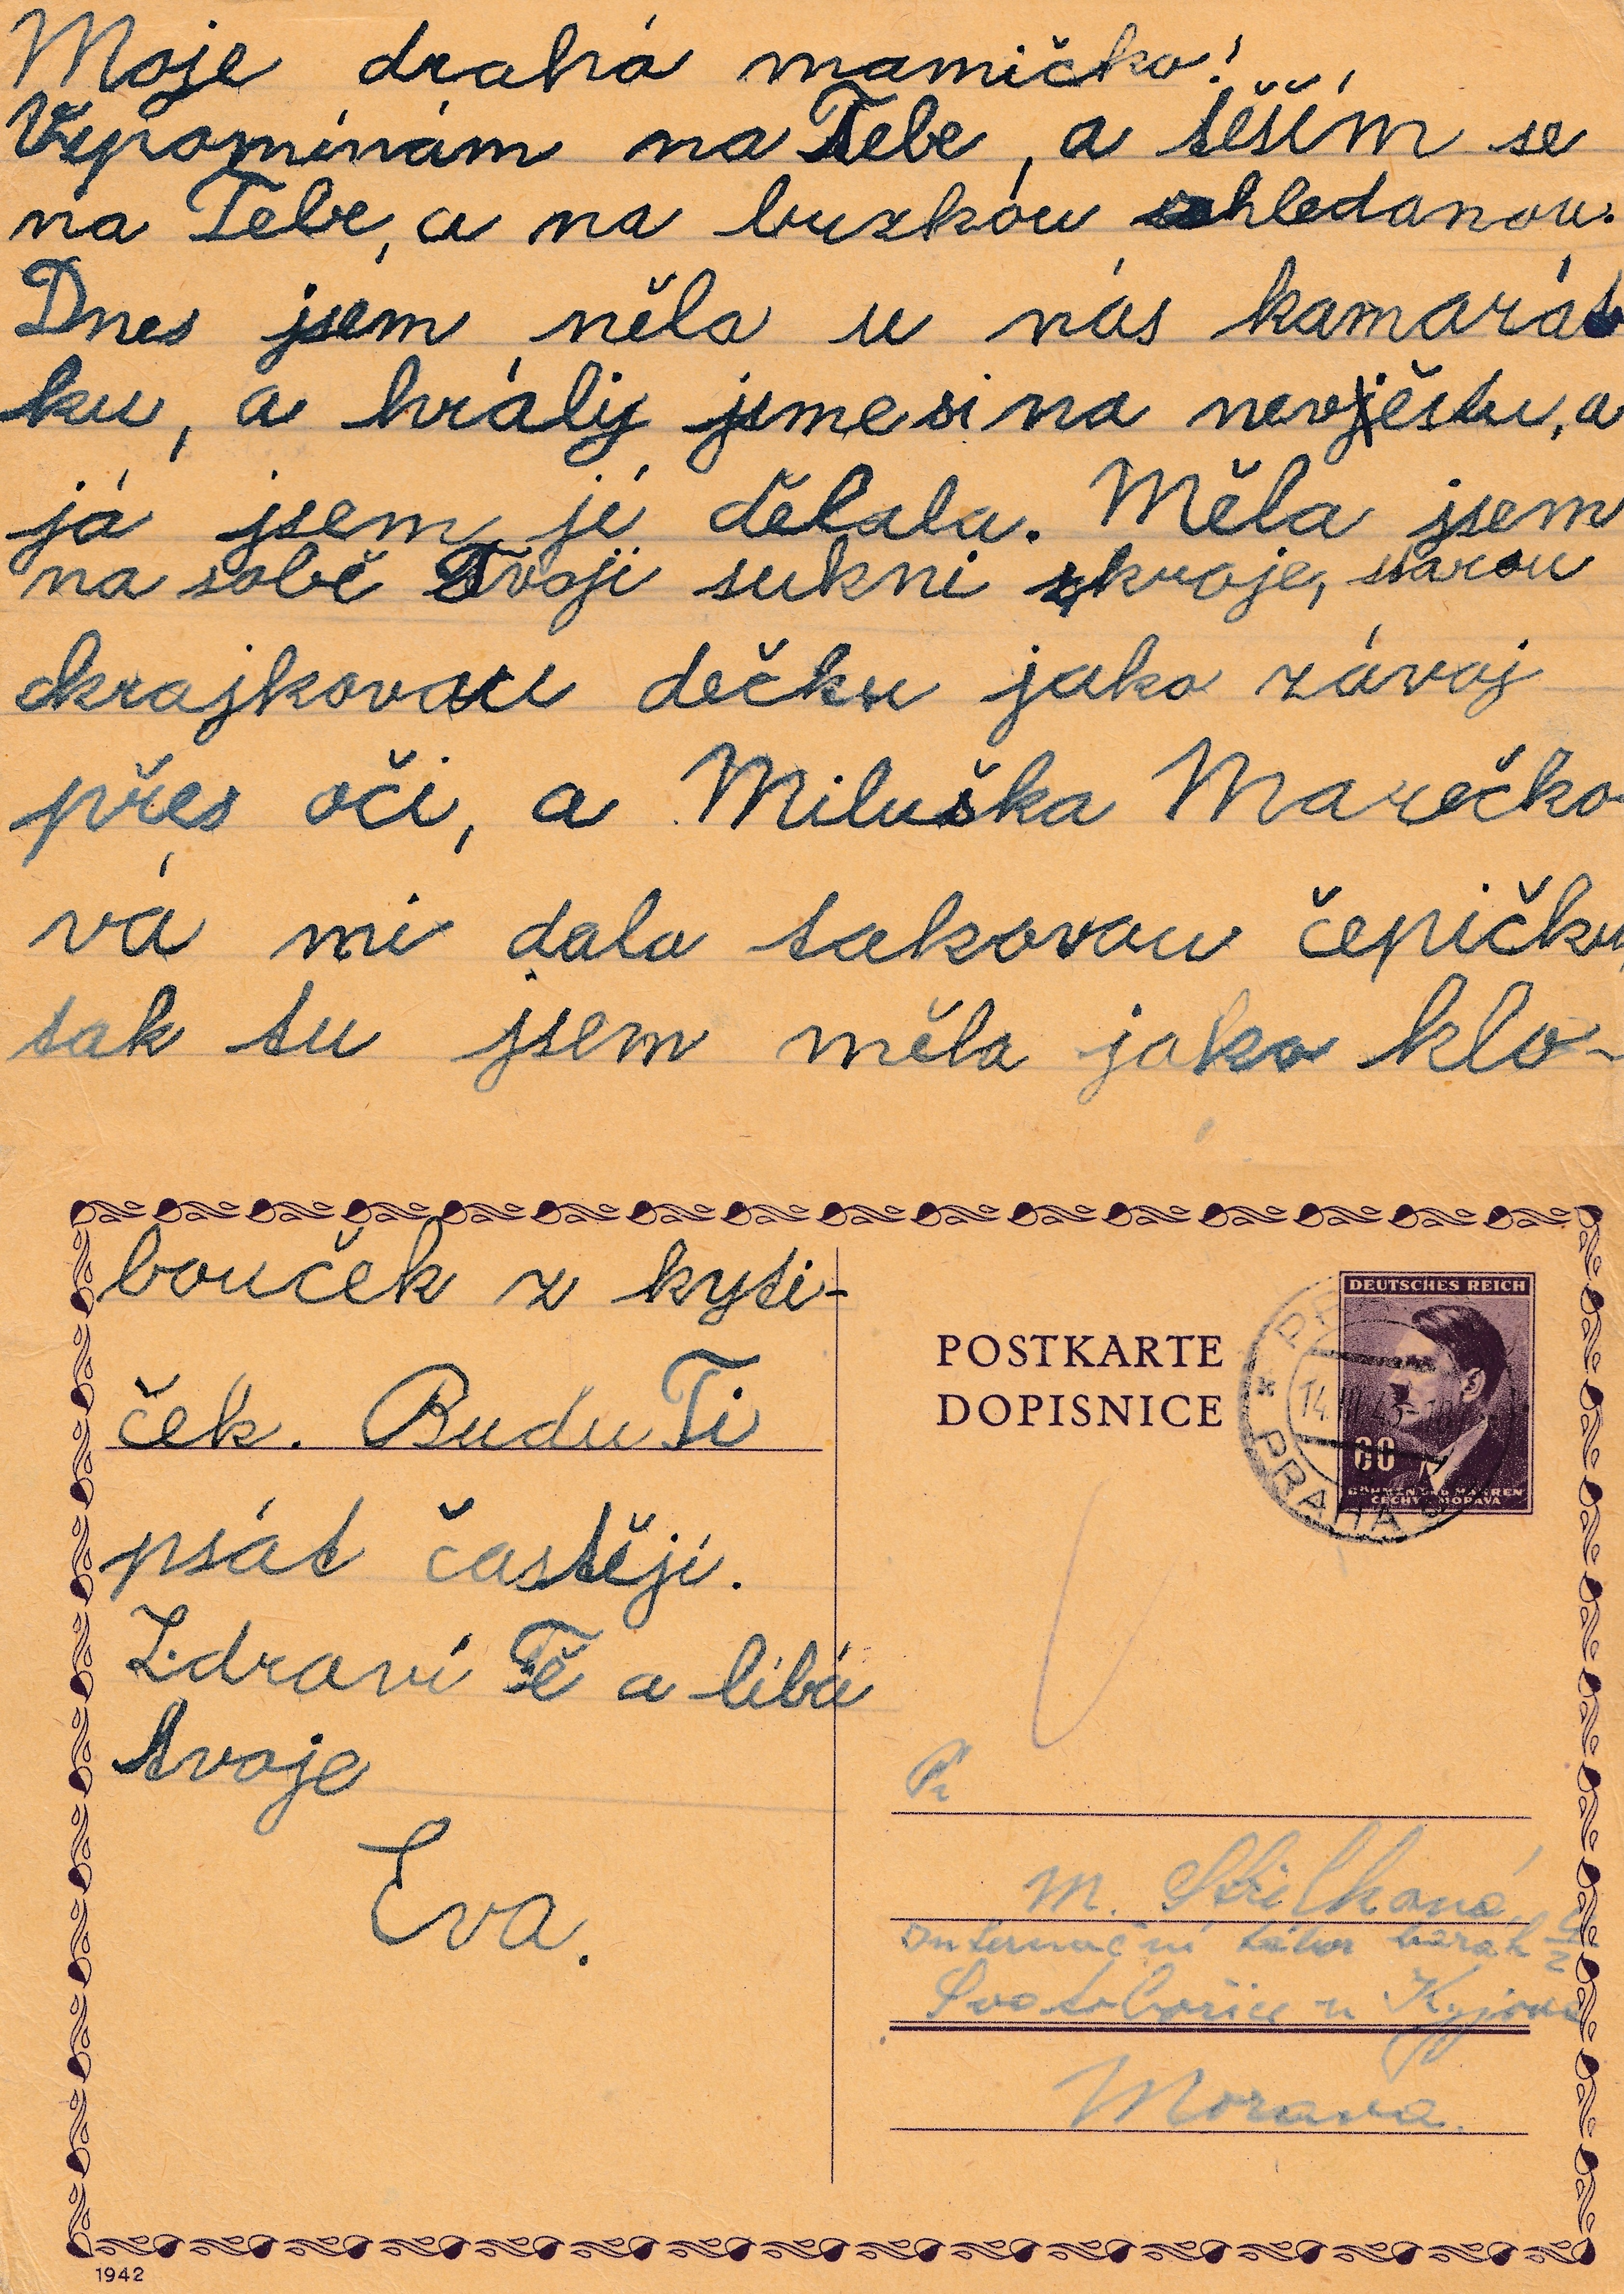 Moje drahá mamičko!
Vzpomínám na Tebe, a těším se
na Tebe, a na brzkou shledanou.
Dnes jsem měla u nás kamarát
ku, a hrály jsme si na nevěstu, a
já jsem jí dělala. Měla jsem
na sobě Tvoji sukni z kroje, starou
krajkovou dečku jako závoj
přes oči, a Miluška Marečko-
vá mi dala takovou čepičku,
tak tu jsem měla jako klo-
bouček z kyti-
ček. Budu Ti
psát častěji.
Zdraví Tě a líbá
tvoje
Eva.
POSTKARTE
DOPISNICE
DEUTSCHES REICH
60
BÖHMEN UND MÄHREN
ČECHY A MORAVA
PRAHA
14.III.43
M. Střelková
Internační tábor barák
Svatobořice u Kyjova
Morava.
1942